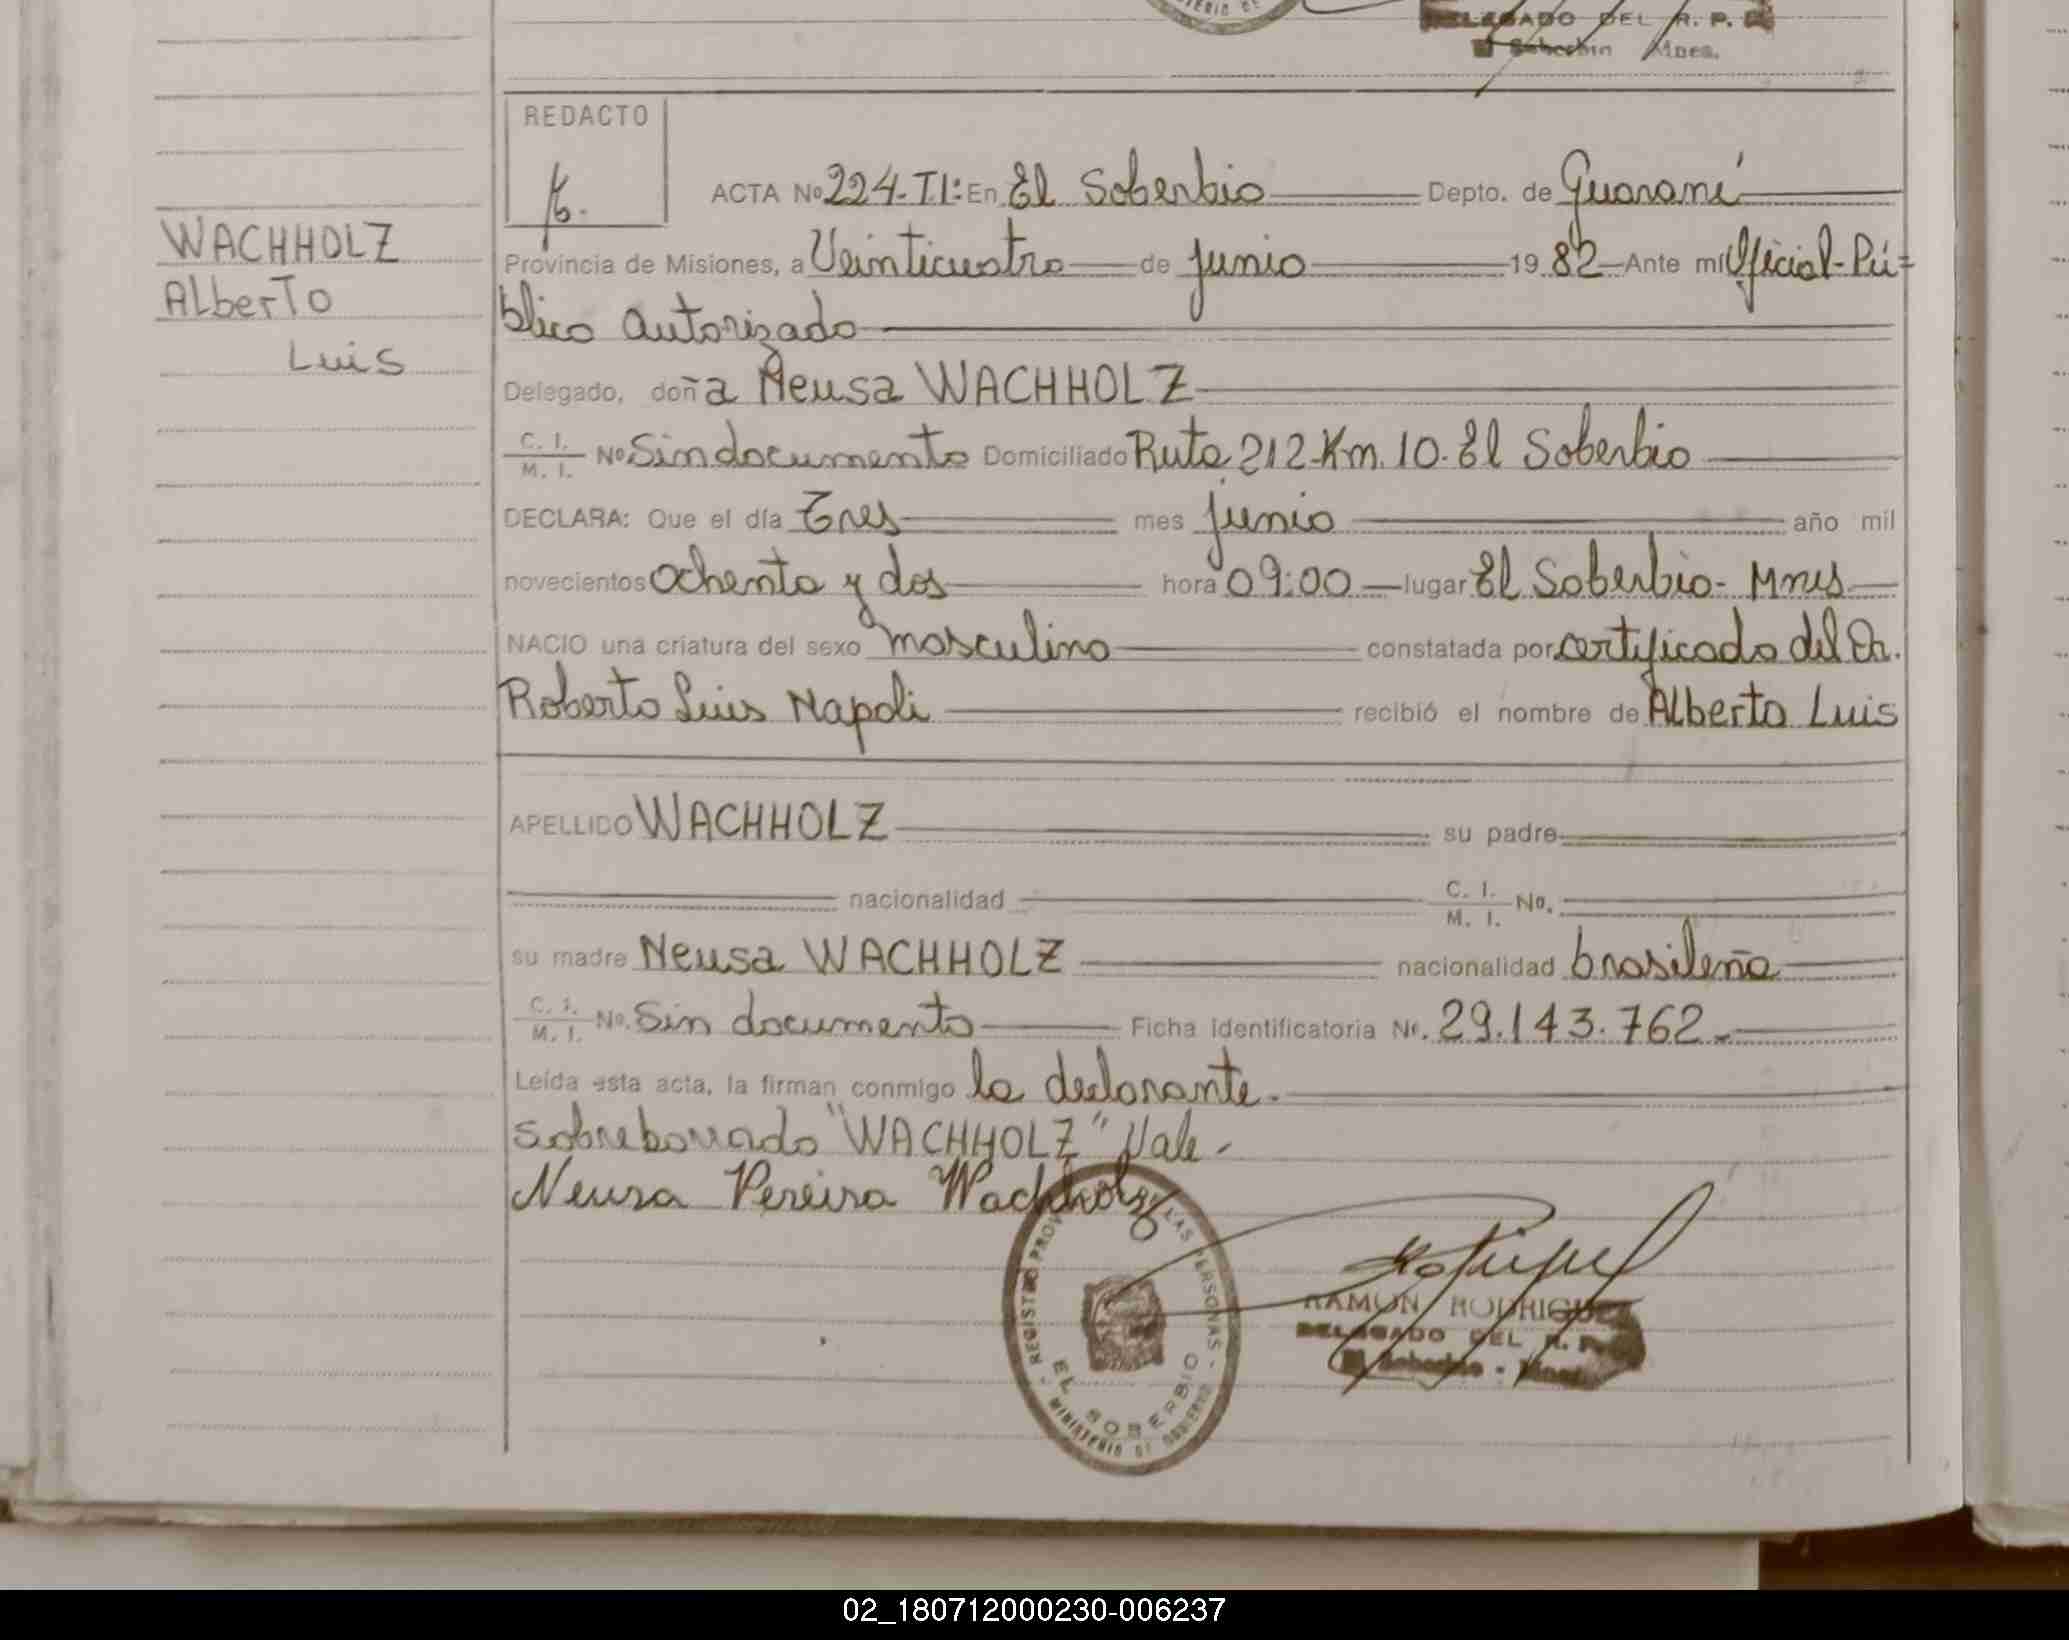 DELEGADO DEL R. P.
Soberbio Mnes.
REDACTO
WACHHOLZ
Alberto
Luis
ACTA No 224-TI: En El Soberbio Depto. de Guaraní
Provincia de Misiones, a Veinticuatro de junio 19 82 Ante mí Oficial-Pú=
blico autorizado
Delegado, doña Neusa WACHHOLZ
C. I. / M. I. No Sin documento Domiciliado Ruta 212-Km. 10. El Soberbio
DECLARA: Que el día Tres mes junio año mil
novecientos ochenta y dos hora 09:00 lugar El Soberbio- Mnes
NACIO una criatura del sexo masculino constatada por certificado del Dr.
Roberto Luis Napoli recibió el nombre de Alberto Luis
APELLIDO WACHHOLZ su padre
nacionalidad C. I. / M. I. No.
su madre Neusa WACHHOLZ nacionalidad brasileña
C. I. / M. I. No. Sin documento Ficha identificatoria No. 29.143.762.-
Leída esta acta, la firman conmigo la declarante.
sobreborrado "WACHHOLZ" Vale-
Neusa Pereira Wachholz
REGISTRO PROV LAS PERSONAS
EL SOBERBIO
MINISTERIO DE GOBIERNO
RAMON RODRIGUEZ
DELEGADO DEL R. P.
Soberbio - Mnes.
02_180712000230-006237